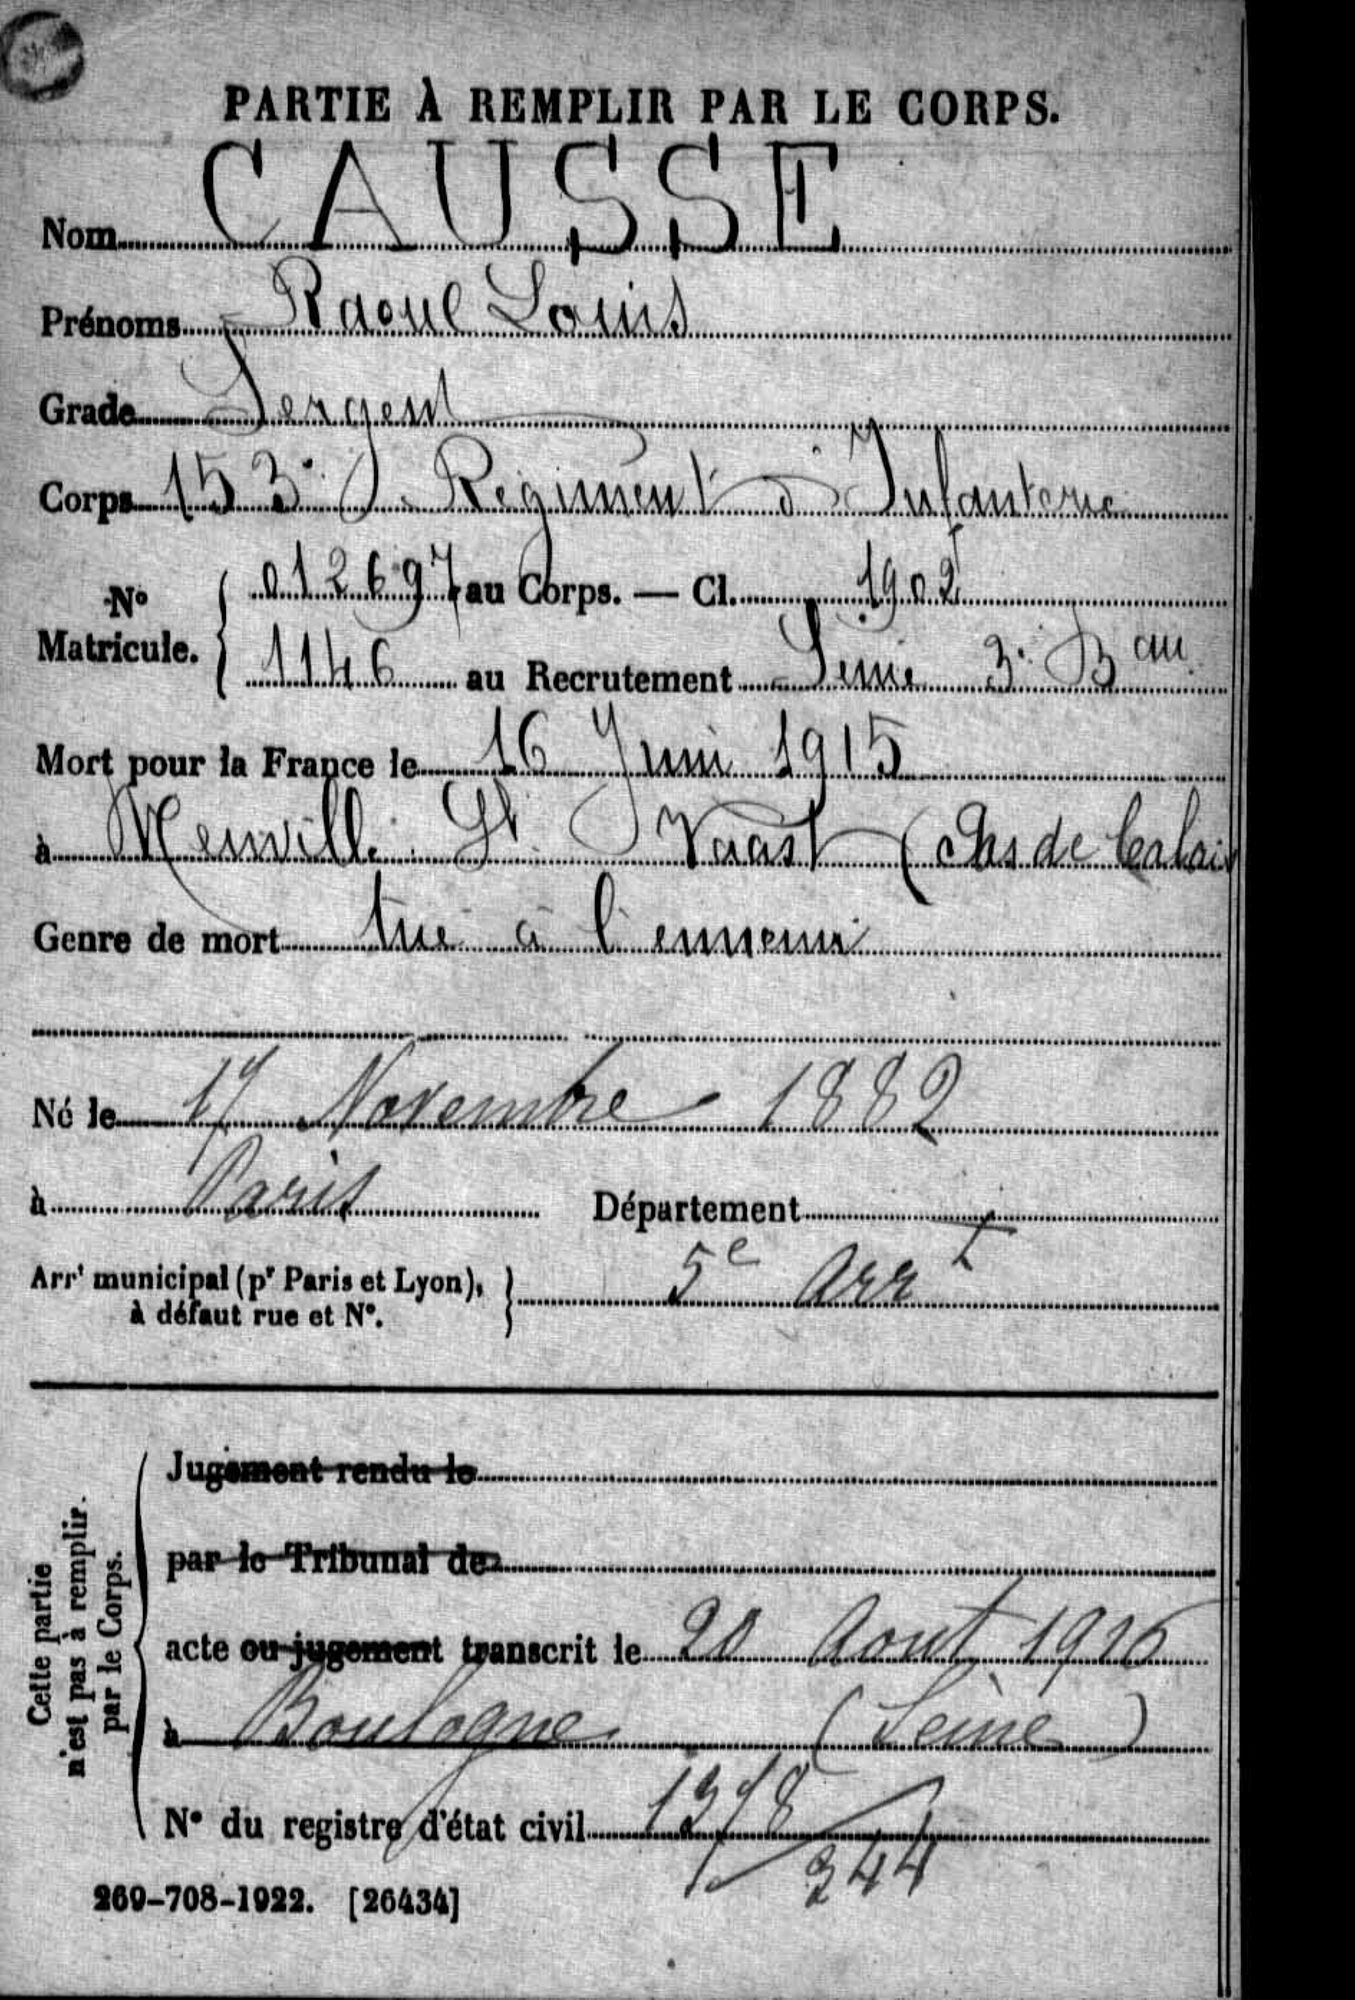 PARTIE À REMPLIR PAR LE CORPS.
Nom CAUSSE
Prénoms Raoul Louis
Grade Sergent
Corps 153e Régiment d'Infanterie
No Matricule. 012697 au Corps. — Cl. 1902
1146 au Recrutement Seine 3e Bau
Mort pour la France le 16 Juin 1915
à Neuville St Vaast (Pas de Calais
Genre de mort tué à l'ennemi
Né le 17 Novembre 1882
à Paris Département
Arrt municipal (pr Paris et Lyon), à défaut rue et No. 5e Arrt
Cette partie n'est pas à remplir par le Corps.
Jugement rendu le
par le Tribunal de
acte ou jugement transcrit le 20 Aout 1916
à Boulogne (Seine)
No du registre d'état civil 1378/344
269-708-1922. [26434]